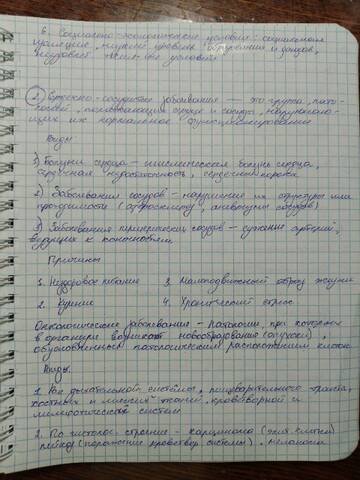 6. Социально-экономические условия: социальная
изоляция, низкий уровень образования и дохода,
Сердечно-сосудистые заболевания – это группа пато-
логий, поражающих сердце и сосуды,
их нормальное функционирование
Виды
1) Болезни сердца – ишемическая болезнь сердца,
сердечная недостаточность, сердца
2) Заболевания сосудов – нарушение их структуры или
проходимости (атеросклероз, аневризмы сосудов)
3) Заболевания периферических сосудов – сужение артерий,
ведущих к конечностям
Причины
1. Нездоровое питание 3. Малоподвижный образ жизни
2. Курение 4. Хронический стресс
Онкологические заболевания – патологии, при которых
в организме возникают новообразования (опухоли),
обусловленные патологическим клеток
Виды:
1. Рак дыхательной системы, пищеварительного тракта,
костных и мягких тканей, кроветворной и
лимфатической систем
2. По гистолог. строению – карцинома (эпителий)
(поражение кроветвор. системы), меланома